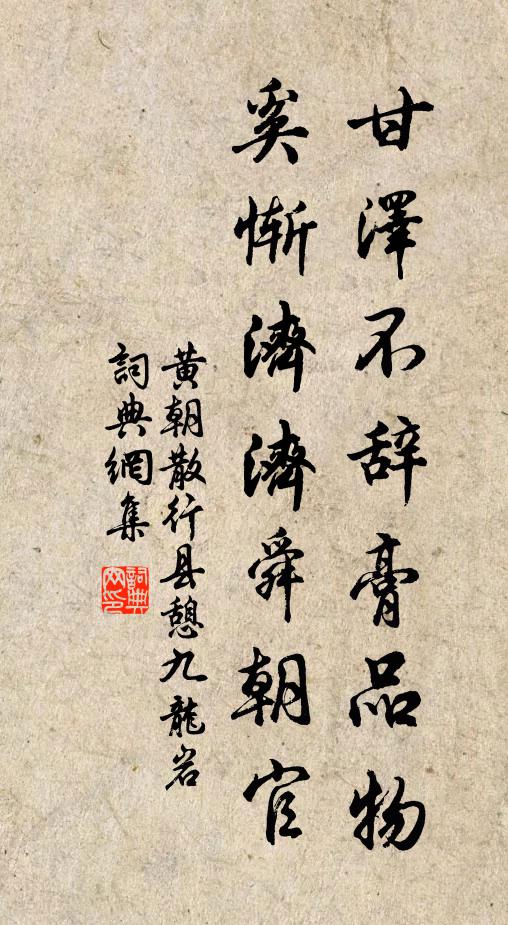 甘澤不辞膏品物
奚慚濟濟舜朝官
黄朝散行县憩九龍岩
詞典網集
詞典
网印